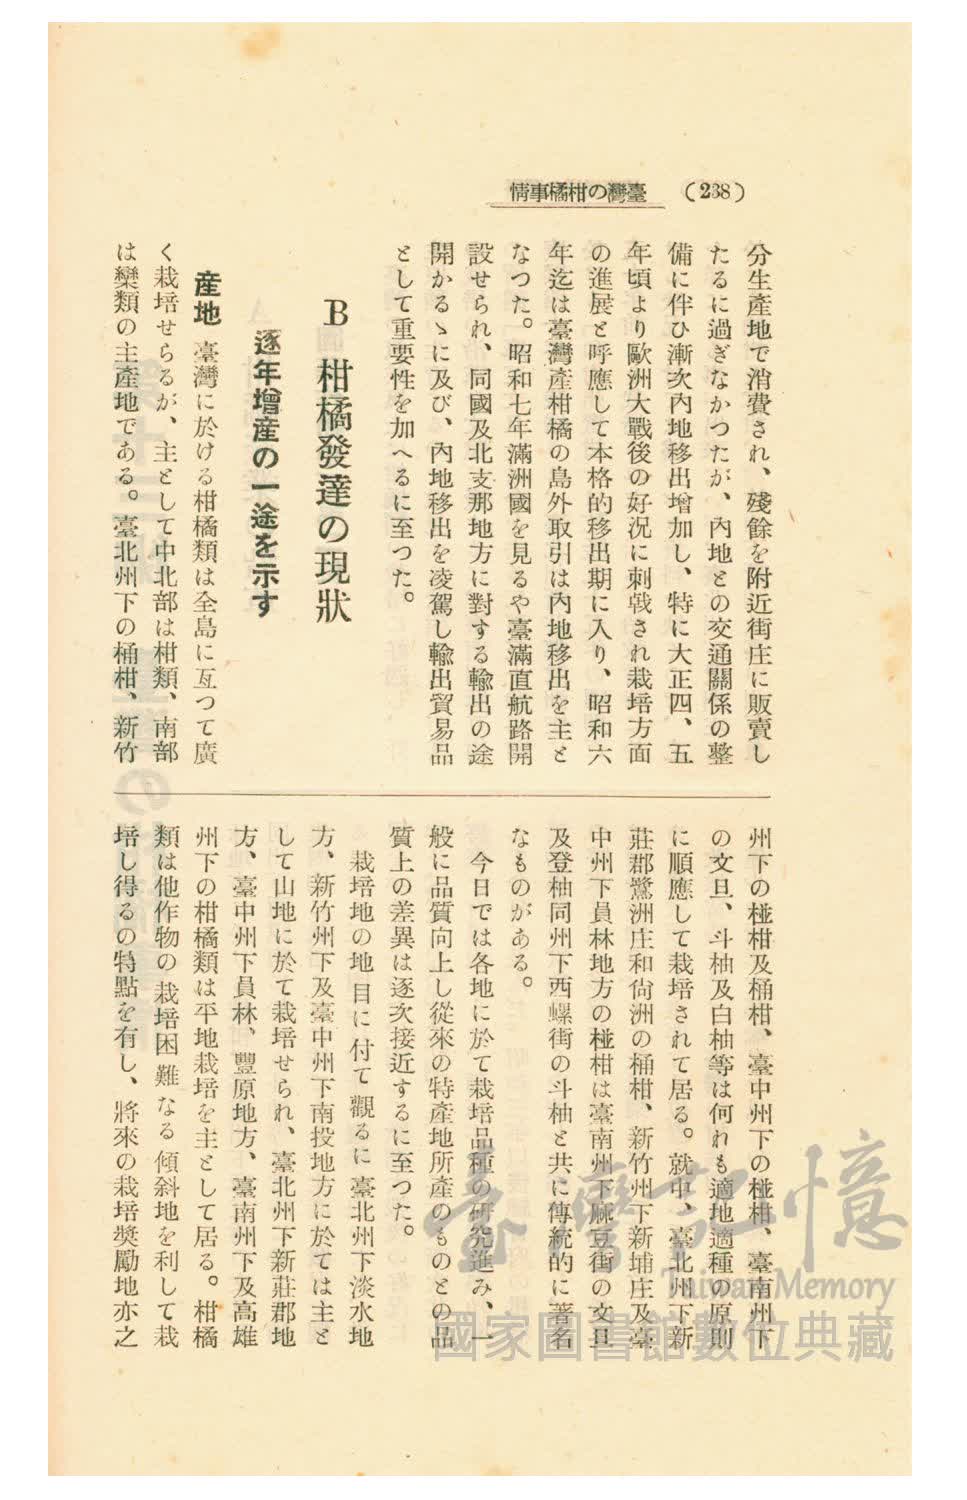 (238) 臺灣の柑橘事情
分生產地で消費され、殘餘を附近街庄に販賣し
たるに過ぎなかつたが、內地との交通關係の整
備に伴ひ漸次內地移出增加し、特に大正四、五
年頃より歐洲大戰後の好況に刺戟され栽培方面
の進展と呼應して本格的移出期に入り、昭和六
年迄は臺灣產柑橘の島外取引は內地移出を主と
なつた。昭和七年滿洲國を見るや臺滿直航路開
設せられ、同國及北支那地方に對する輸出の途
開かるゝに及び、內地移出を凌駕し輸出貿易品
として重要性を加へるに至つた。
B 柑橘發達の現狀
逐年增產の一途を示す
産地 臺灣に於ける柑橘類は全島に亙つて廣
く栽培せらるが、主として中北部は柑類、南部
は欒類の主產地である。臺北州下の桶柑、新竹
州下の椪柑及桶柑、臺中州下の椪柑、臺南州下
の文旦、斗柚及白柚等は何れも適地適種の原則
に順應して栽培されて居る。就中、臺北州下新
莊郡鷺洲庄和尙洲の桶柑、新竹州下新埔庄及臺
中州下員林地方の椪柑は臺南州下麻豆街の文旦
及登柚同州下西螺街の斗柚と共に傳統的に著名
なものがある。
今日では各地に於て栽培品種の硏究進み、一
般に品質向上し從來の特產地所產のものとの品
質上の差異は逐次接近するに至つた。
栽培地の地目に付て觀るに臺北州下淡水地
方、新竹州下及臺中州下南投地方に於ては主と
して山地に於て栽培せられ、臺北州下新莊郡地
方、臺中州下員林、豐原地方、臺南州下及高雄
州下の柑橘類は平地栽培を主として居る。柑橘
類は他作物の栽培困難なる傾斜地を利して栽
培し得るの特點を有し、將來の栽培獎勵地亦之
臺灣記憶
Taiwan Memory
國家圖書館數位典藏